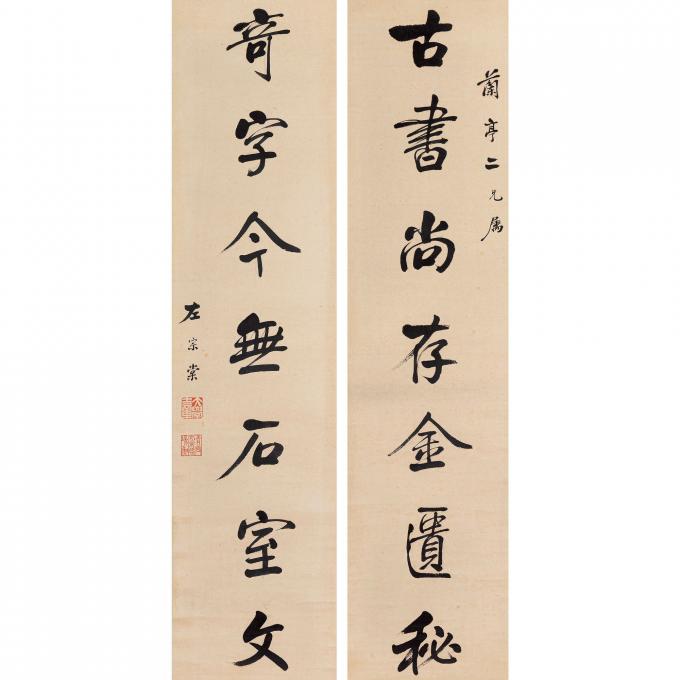 蘭亭二兄属
古書尚存金匱秘
奇字今無石室文
左宗棠